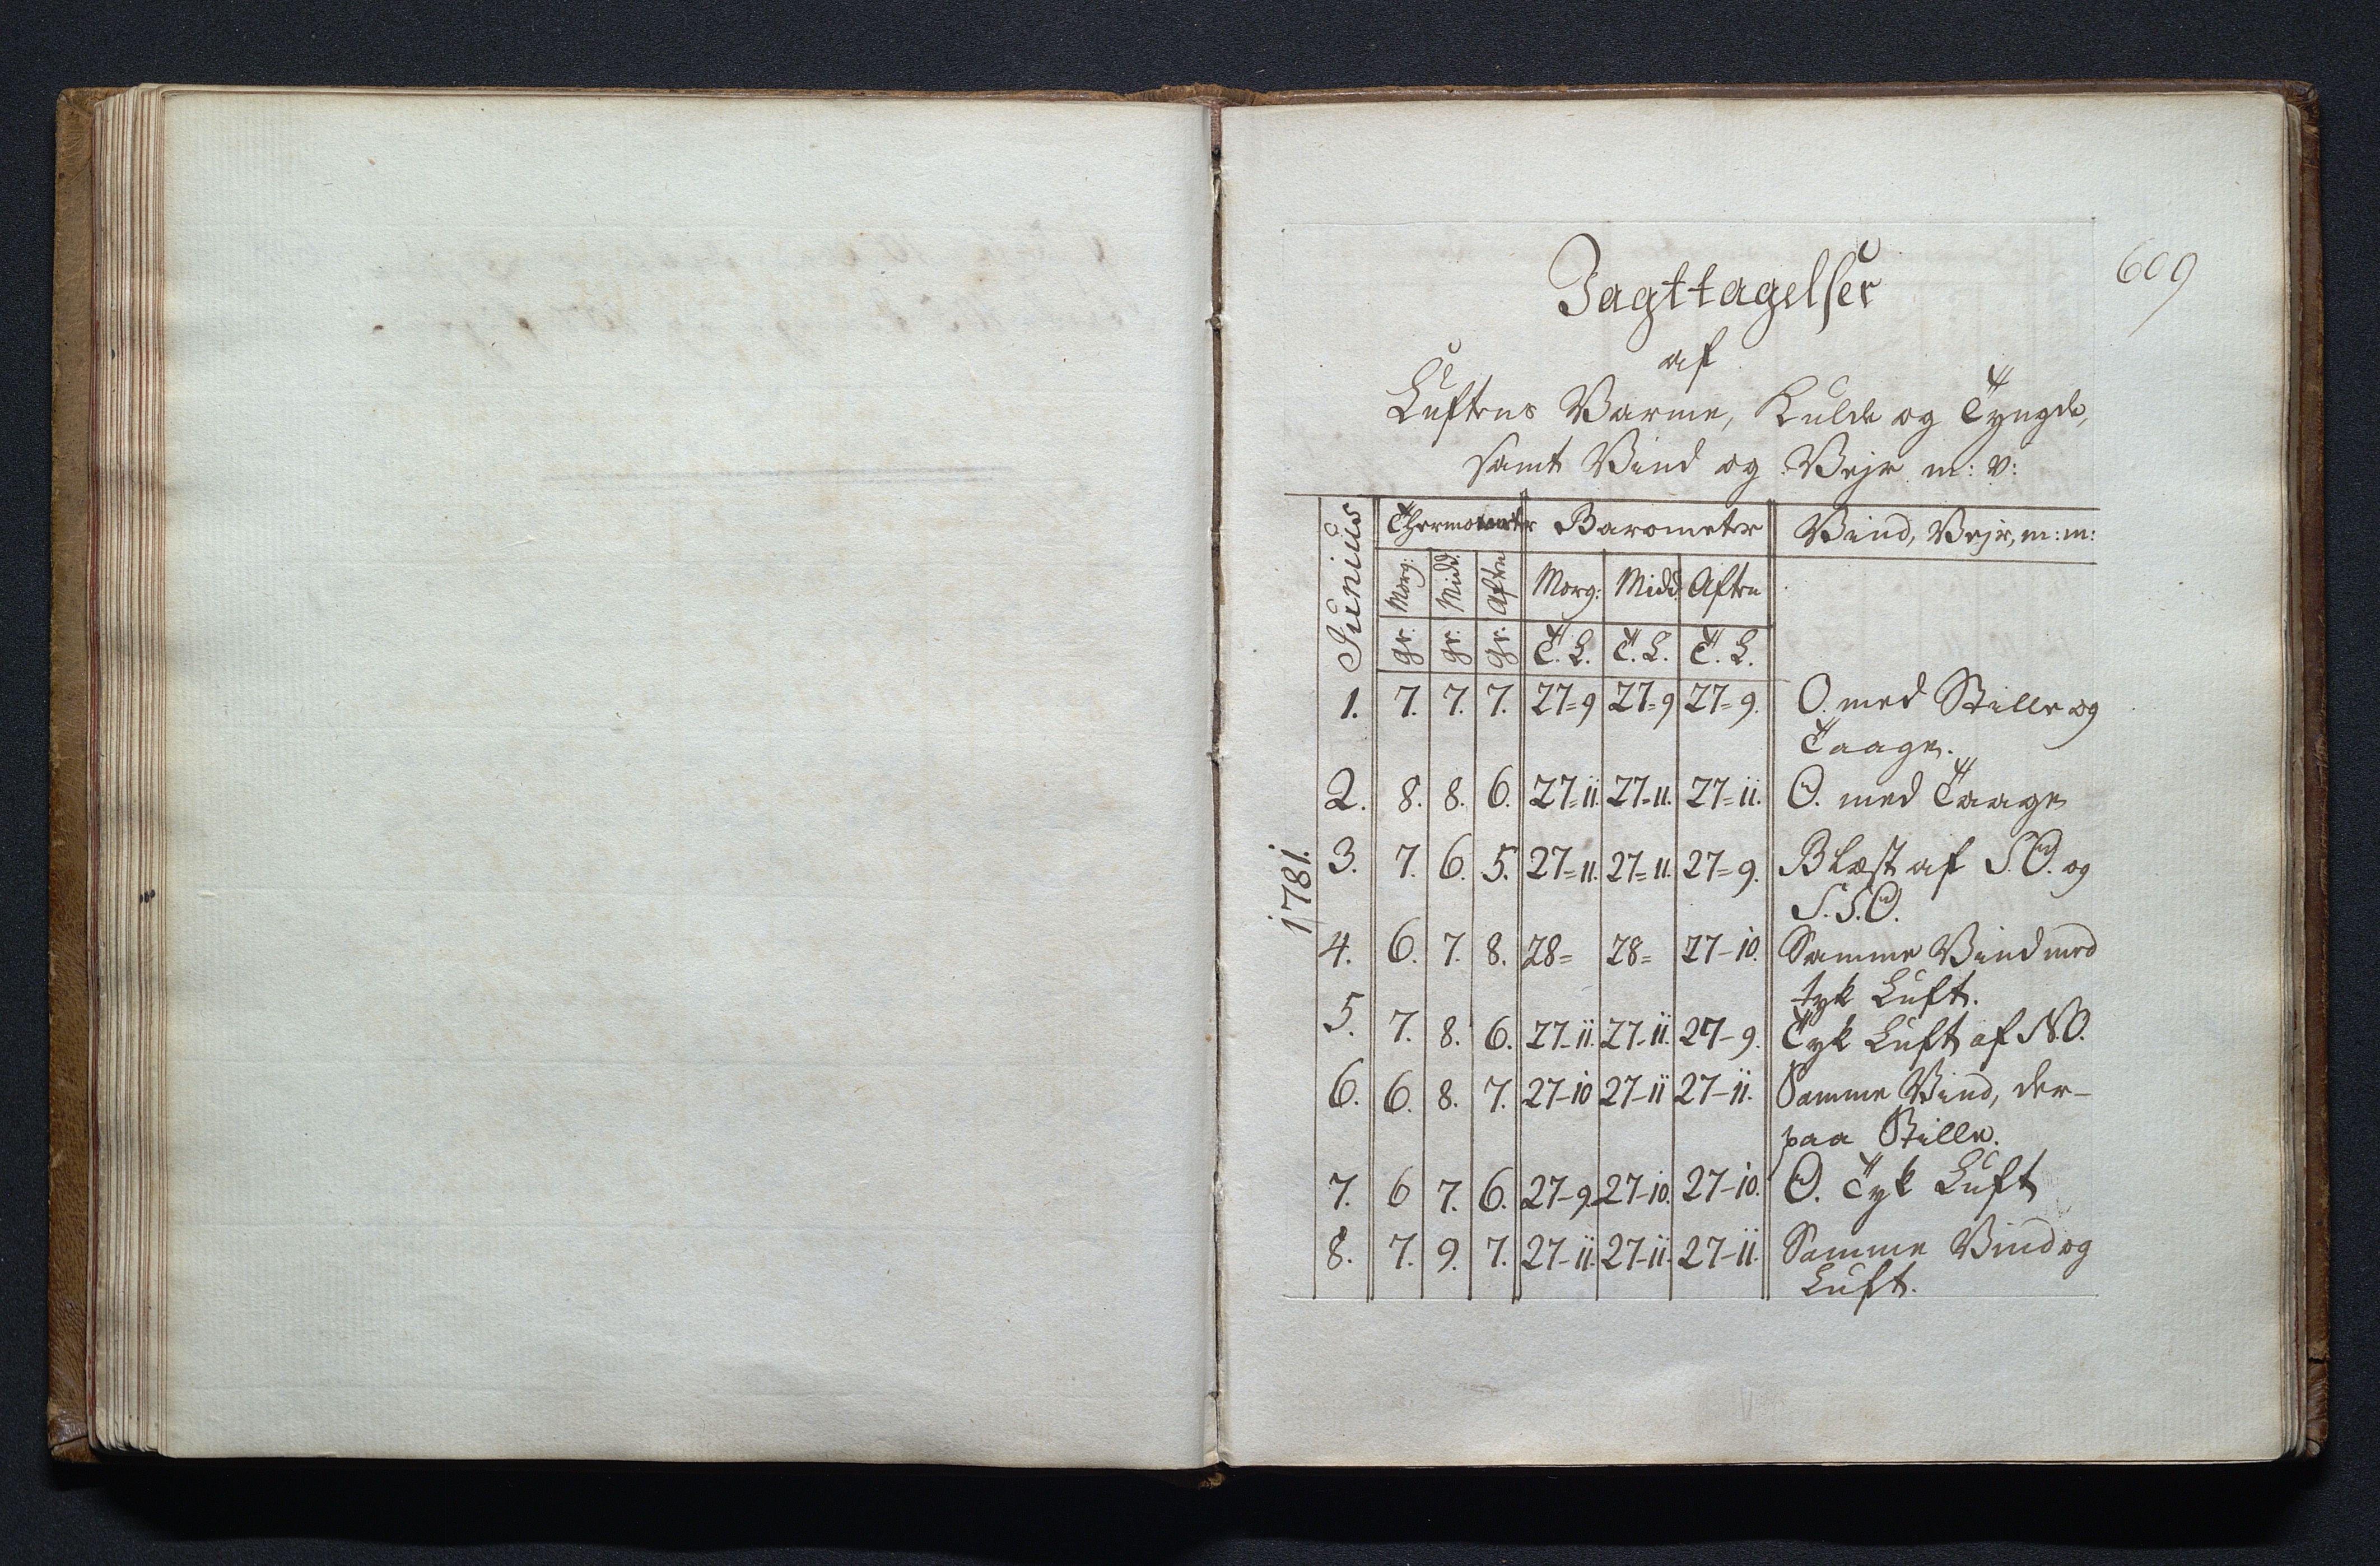 609
Jagttagelser
af
Luftens Varme, Kulde og Tyngde,
samt Vind og Vejr m: v:
1781.
Junius Thermometer Barometer Vind, Vejr, m: m:
Morg: Midd. Aften Morg: Midd. Aften
gr: gr: gr: T. L. T. L. T. L.
1. 7. 7. 7. 27=9 27=9 27=9. O. med Stille og
Taage.
2. 8. 8. 6. 27=11. 27=11. 27=11. O. med Taage
3. 7. 6. 5. 27=11. 27=11. 27=9. Blæst af S.O. og
S. S.O.
4. 6. 7. 8. 28= 28= 27-10. Samme Vind med
tyk Luft.
5. 7. 8. 6. 27-11. 27-11. 27-9. Tyk Luft af N.O.
6. 6. 8. 7. 27-10 27-11 27-11. Samme Vind, der-
paa Stille.
7. 6 7. 6. 27-9. 27-10. 27-10. O. Tyk Luft
8. 7. 9. 7. 27-11. 27-11. 27-11. Samme Vind og
Luft.